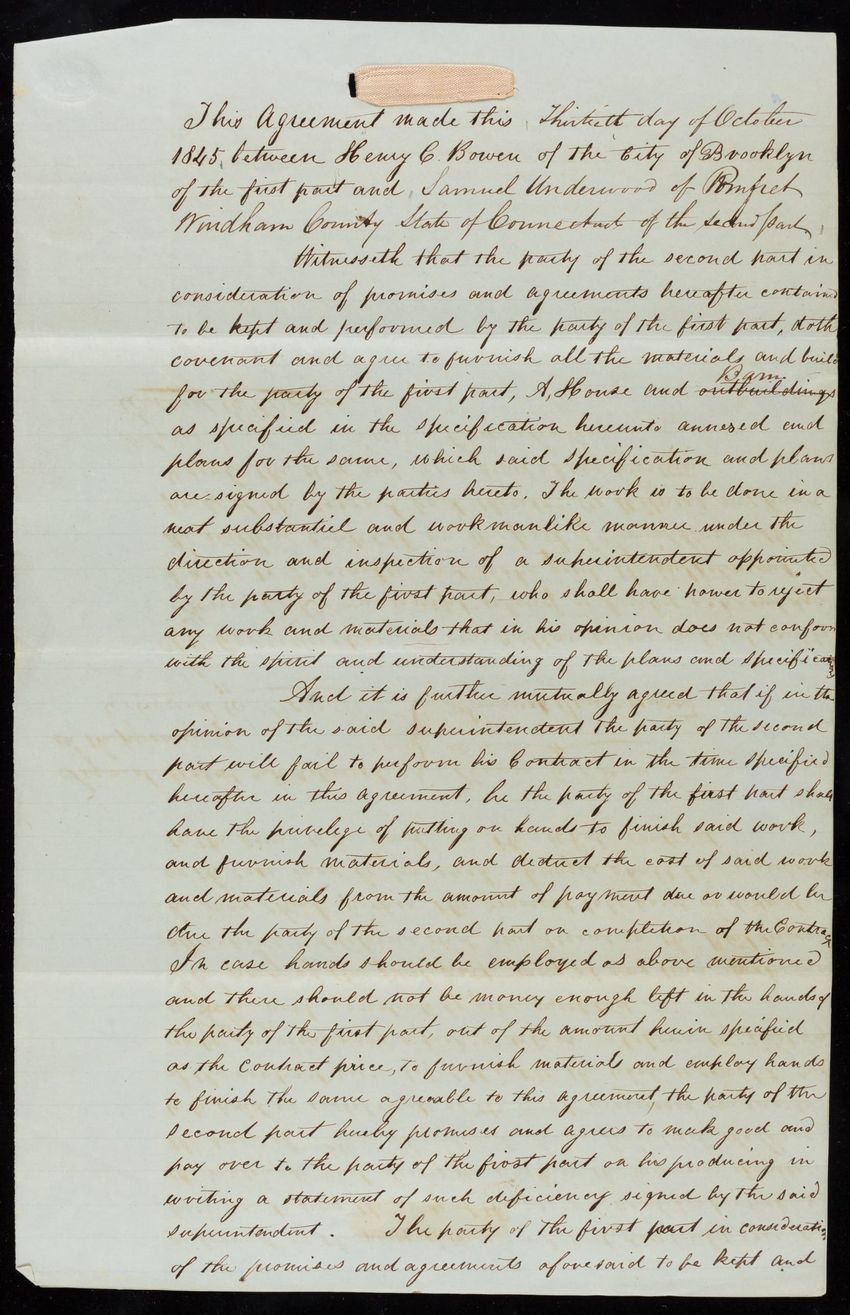 This Agreement made this Thirtieth day of October
1845, between Henry C. Bowen of the City of Brooklyn
of the first part and Samuel Underwood of Pomfret
Windham County State of Connecticut of the second part,
Witnesseth that the party of the second part in
consideration of promises and agreements hereafter contained
to be kept and performed by the party of the first part, doth
covenant and agree to furnish all the materials and build
Barn
for the party of the first part, A, House and outbuildings
as specified in the specification hereunto annexed and
plans for the same, which said specification and plans
are signed by the parties hereto. The work is to be done in a
neat substantiel and workmanlike manner under the
direction and inspection of a superintendent appointed
by the party of the first part, who shall have power to reject
any work and materials that in his opinion does not conform
with the spirit and understanding of the plans and specifications
And it is further mutually agreed that if in the
opinion of the said superintendent the party of the second
part will fail to perform his Contract in the time specified
hereafter in this agreement, he the party of the first part shall
have the privelege of putting on hands to finish said work,
and furnish materials, and deduct the cost of said work
and materials from the amount of payment due or would be
due the party of the second part on completion of the Contract
In case hands should be employed as above mentioned
and there should not be money enough left in the hands of
the party of the first part, out of the amount herin specified
as the Contract price, to furnish materials and employ hands
to finish the same agreeable to this agreement, the party of the
second part hereby promises and agrees to make good and
pay over to the party of the first part on his producing in
writing a statement of such deficiency signed by the said
superintendent. The party of the first part in consideration
of the promises and agreements aforesaid to be kept and